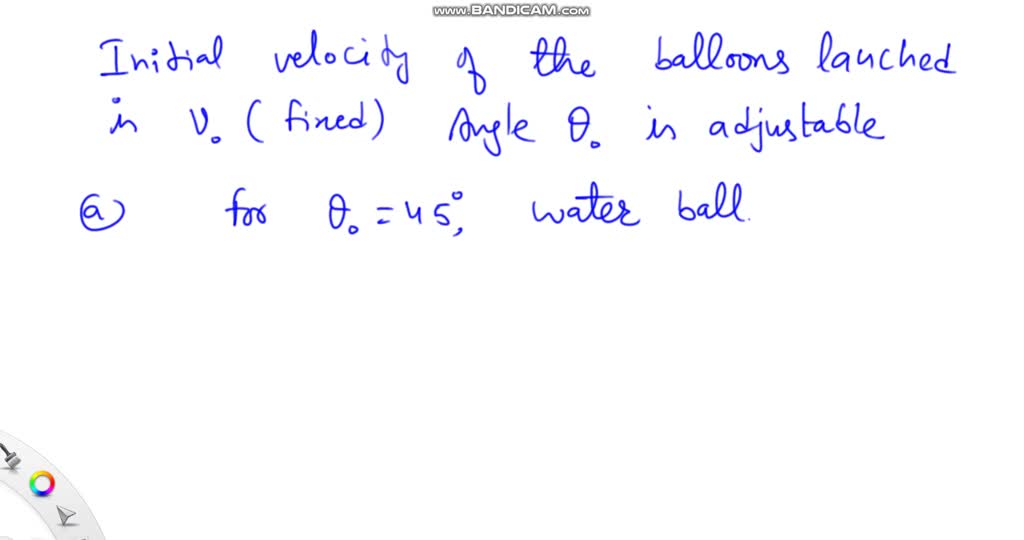 www.BANDICAM.com
Initial velocity of the balloons lauched
in V₀ (fixed) Angle θ₀ is adjustable
ⓐ for θ₀ = 45°, water ball.